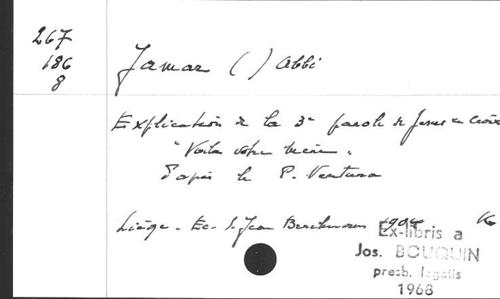 267
186
8
Jamar ( ) Abbé
Explication de la 3e parole de Jesus en Croix
"Voilà votre Mère".
d'après le P. Ventura
Liège - Ec. S. Jean Berchmans 1904
Ex-libris a
Jos. BOUQUIN
presb. legatis
1968